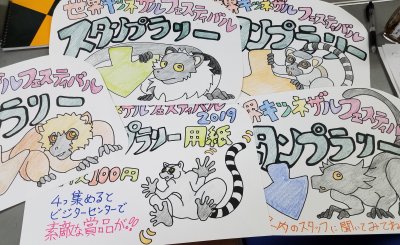 世界キツネザルフェスティバル
スタンプラリー
キツネザルフェスティバル
スタンプラリー
ザルフェスティバル
プラリー
ザルフェスティバル 2019
プラリー 用紙
100円
4つ集めると
ビジターセンターで
素敵な賞品が!!
界キツネザルフェスティバル
タンプラリー
内のスタッフに聞いてみてね